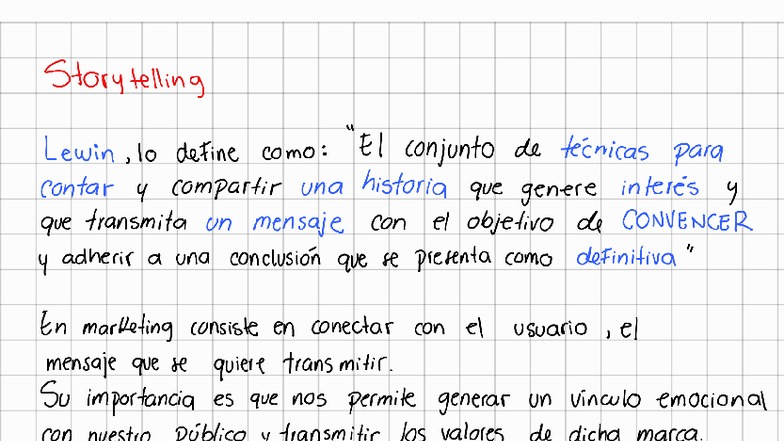 Storytelling
Lewin, lo define como: "El conjunto de técnicas para
contar y compartir una historia que genere interés y
que transmita un mensaje con el objetivo de CONVENCER
y adherir a una conclusión que se presenta como definitiva"
En marketing consiste en conectar con el usuario, el
mensaje que se quiere transmitir.
Su importancia es que nos permite generar un vínculo emocional
con nuestro público y transmitir los valores de dicha marca.